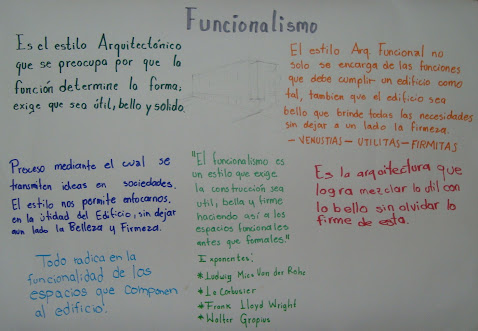 Funcionalismo
Es el estilo Arquitectónico
que se preocupa por que la
función determine la forma;
exige que sea útil, bello y solido.
El estilo Arq. Funcional no
solo se encarga de las funciones
que debe cumplir un edificio como
tal, tambien que el edificio sea
bello que brinde todas las necesidades
sin dejar a un lado la firmeza.
- VENUSTIAS - UTILITAS - FIRMITAS
Proceso mediante el cual se
transmiten ideas en sociedades.
El estilo nos permite enfocarnos.
en la útidad del Edificio, sin dejar
aun lado la Belleza y Firmeza.
"El funcionalismo es
un estilo que exige
la construcción sea
util, bella y firme
haciendo así a los
espacios funcionales
antes que formales."
Exponentes:
*Ludwig Mies Van der Rohe
*Le Corbusier
*Frank Lloyd Wright
*Walter Gropius
Es la arquitectura que
logra mezclar lo util con
lo bello sin olvidar lo
firme de esta.
Todo radica en la
funcionalidad de los
espacios que componen
al edificio.